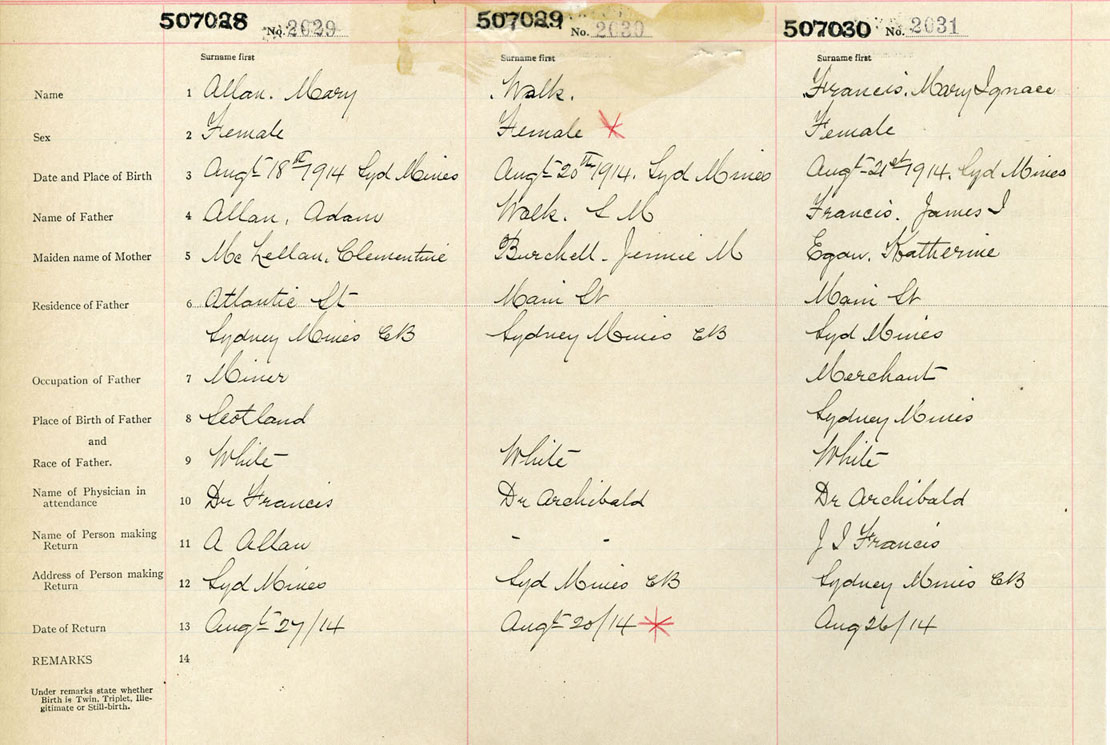 507028 No. 2029 507029 No. 2030 507030 No. 2031
Surname first Surname first Surname first
Name 1 Allan. Mary Walk. Francis. Mary Ignace
Sex 2 Female Female Female
Date and Place of Birth 3 Augt 18th 1914 Syd Mines Augt 20th 1914. Syd Mines Augt 21st 1914. Syd Mines
Name of Father 4 Allan, Adam Walk. S M Francis. James I
Maiden name of Mother 5 Mc Lellan. Clementine Burchell. Jennie M Egan. Katherine
Residence of Father 6 Atlantic St Main St Main St
Sydney Mines CB Sydney Mines CB Syd Mines
Occupation of Father 7 Miner Merchant
Place of Birth of Father 8 Scotland Sydney Mines
and
Race of Father. 9 White White White
Name of Physician in attendance 10 Dr Francis Dr Archibald Dr Archibald
Name of Person making Return 11 A Allan - - J I Francis
Address of Person making Return 12 Syd Mines Syd Mines CB Sydney Mines CB
Date of Return 13 Augt 27/14 Augt 20/14 Aug 26/14
REMARKS 14
Under remarks state whether
Birth is Twin, Triplet, Ille-
gitimate or Still-birth.